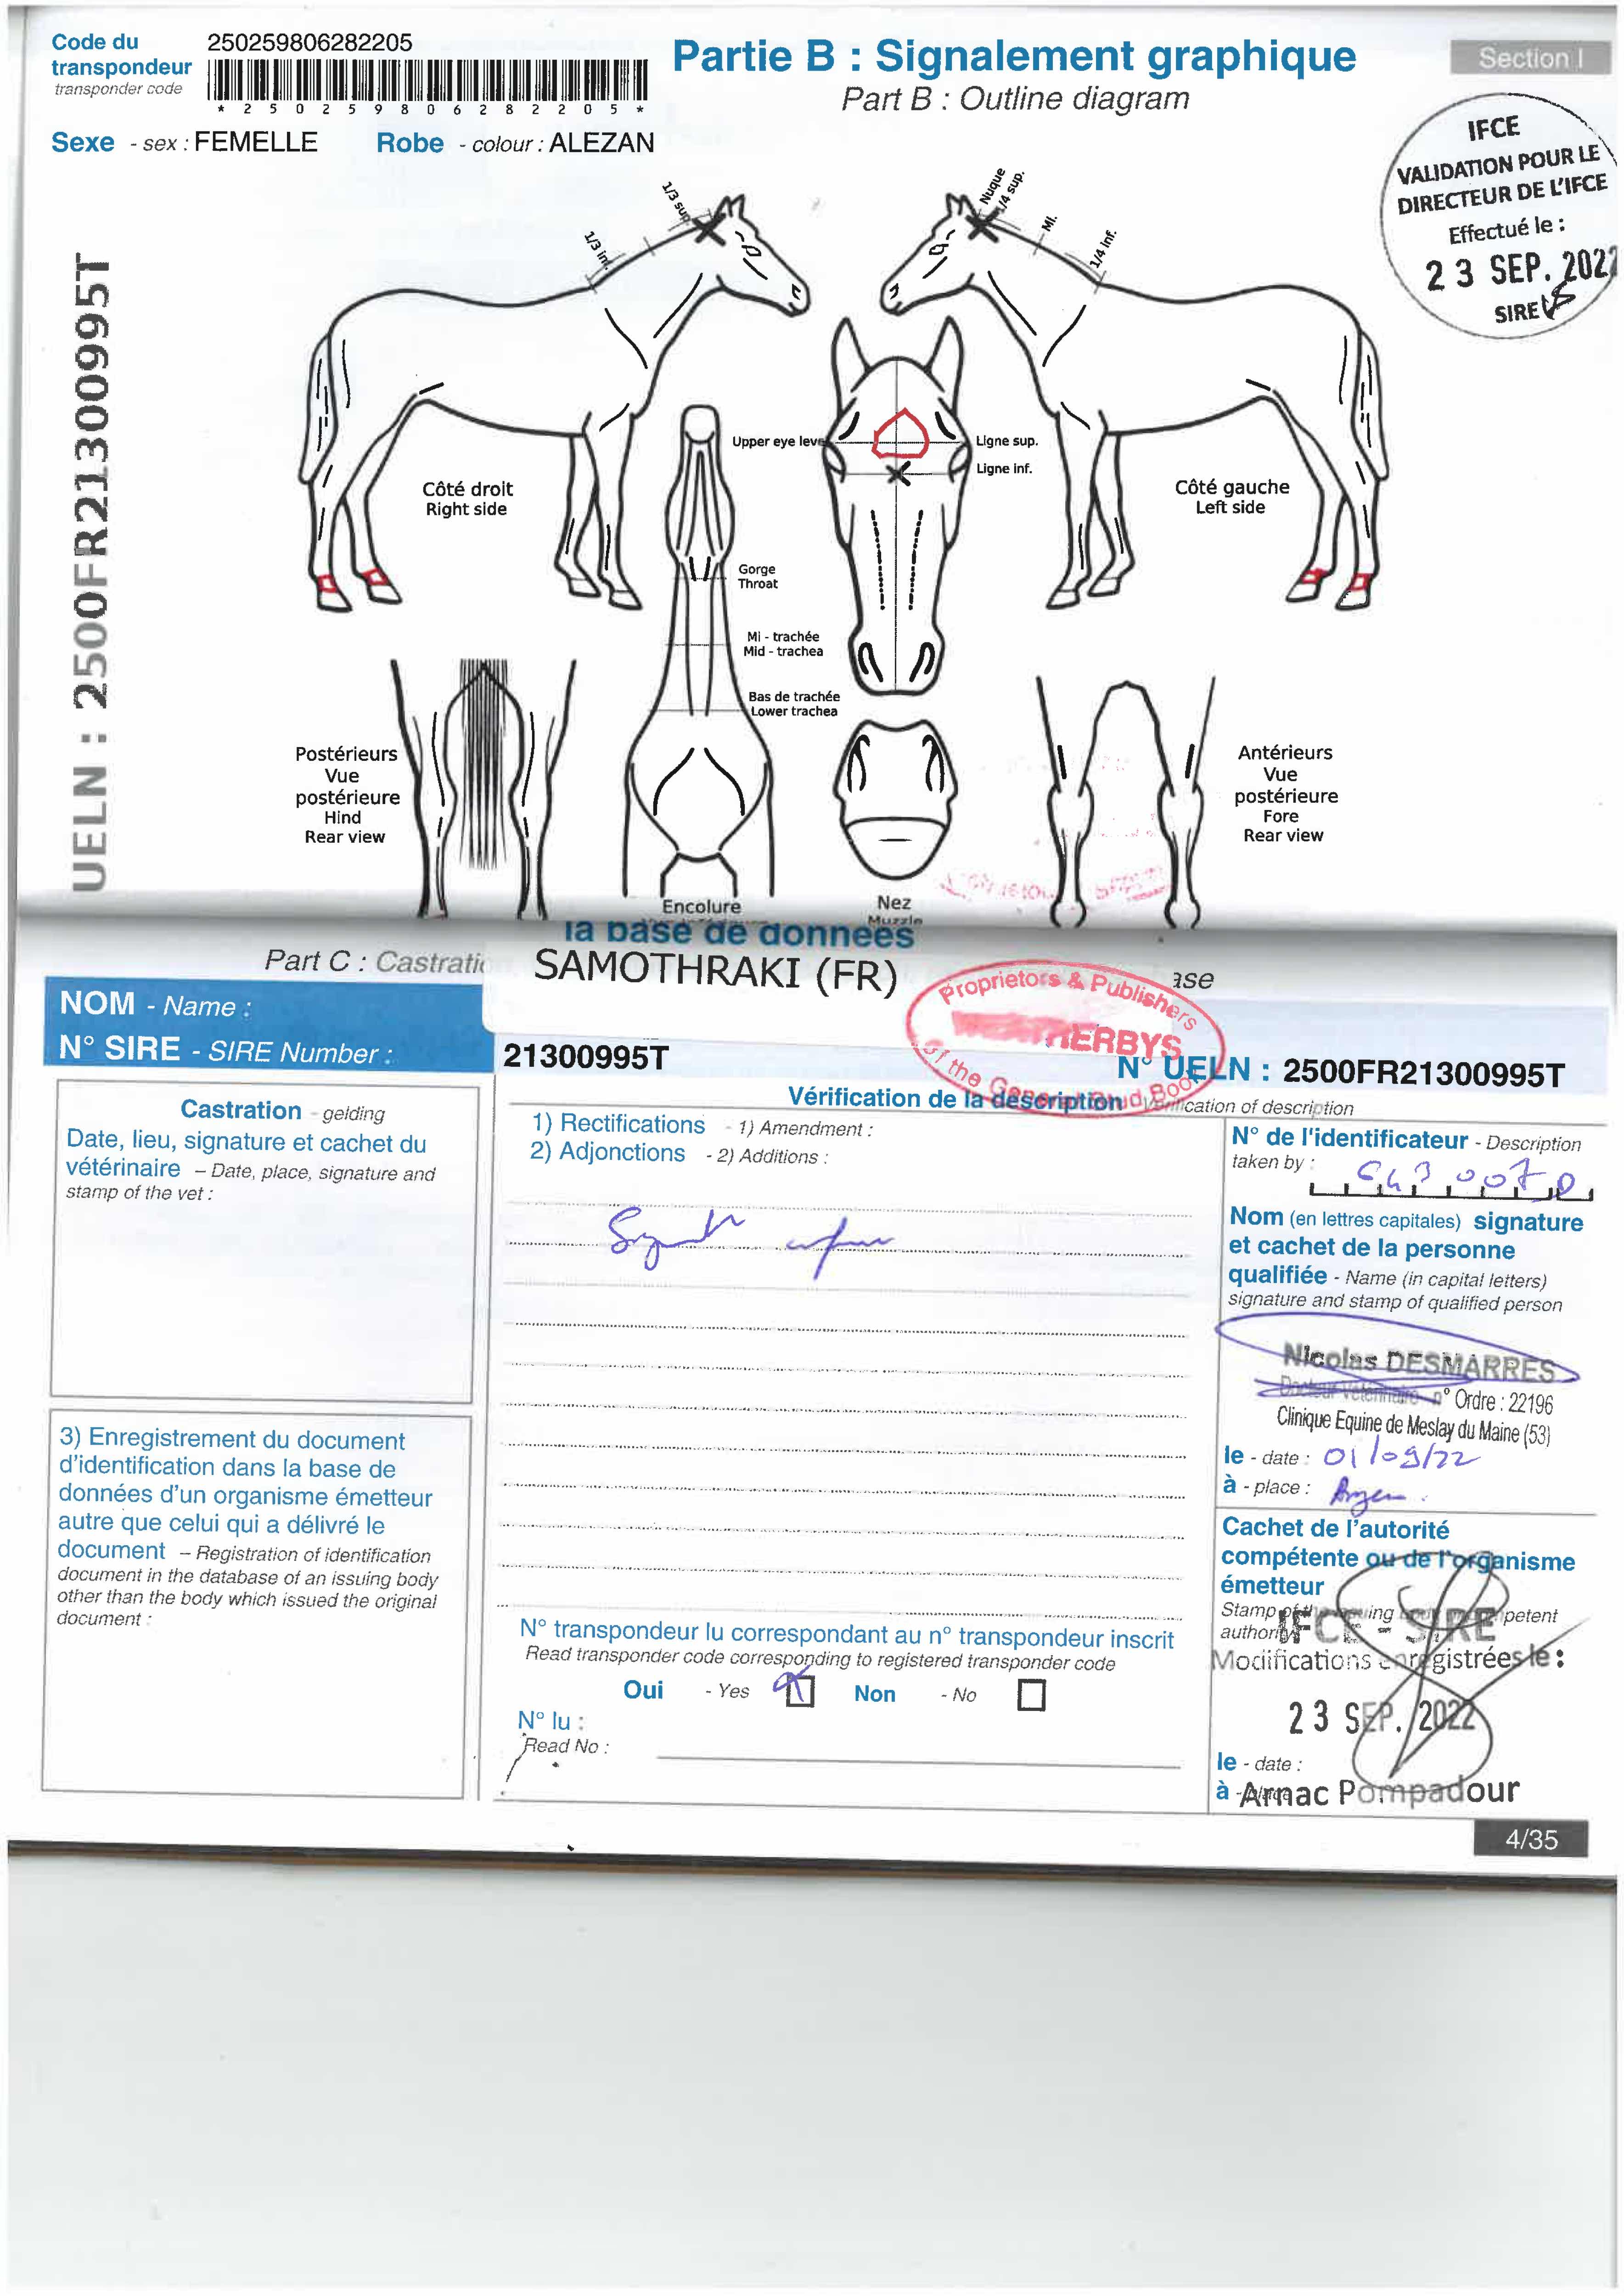 Code du
transpondeur
transponder code
250259806282205
* 2 5 0 2 5 9 8 0 6 2 8 2 2 0 5 *
Partie B : Signalement graphique
Part B : Outline diagram
Section I
Sexe - sex : FEMELLE
Robe - colour : ALEZAN
IFCE
VALIDATION POUR LE
DIRECTEUR DE L'IFCE
Effectué le :
23 SEP. 2022
SIRE
UELN : 2500FR21300995T
1/3 sup.
1/3 inf.
Nuque
1/4 sup.
Mi.
1/4 inf.
Upper eye leve
Ligne sup.
Ligne inf.
Côté droit
Right side
Côté gauche
Left side
Gorge
Throat
Mi - trachée
Mid - trachea
Bas de trachée
Lower trachea
Postérieurs
Vue
postérieure
Hind
Rear view
Antérieurs
Vue
postérieure
Fore
Rear view
Encolure
Nez
Muzzle
la base de données
Part C : Castratio
SAMOTHRAKI (FR)
ase
Proprietors & Publishers
ERBYS
of the General Stud Book
NOM - Name :
N° SIRE - SIRE Number :
21300995T
N° UELN : 2500FR21300995T
Vérification de la description
Verification of description
Castration - gelding
Date, lieu, signature et cachet du
vétérinaire – Date, place, signature and
stamp of the vet :
1) Rectifications - 1) Amendment :
2) Adjonctions - 2) Additions :
N° de l'identificateur - Description
taken by :
Nom (en lettres capitales) signature
et cachet de la personne
qualifiée - Name (in capital letters)
signature and stamp of qualified person
Nicolas DESMARRES
Docteur Vétérinaire n° Ordre : 22196
Clinique Equine de Meslay du Maine (53)
le - date : 01/09/22
à - place :
3) Enregistrement du document
d'identification dans la base de
données d'un organisme émetteur
autre que celui qui a délivré le
document – Registration of identification
document in the database of an issuing body
other than the body which issued the original
document :
Cachet de l'autorité
compétente ou de l'organisme
émetteur
Stamp of the issuing body or competent
authority
IFCE - SIRE
Modifications enregistrées le :
23 SEP. 2022
le - date :
à - place Arnac Pompadour
N° transpondeur lu correspondant au n° transpondeur inscrit
Read transponder code corresponding to registered transponder code
Oui - Yes Non - No
N° lu :
Read No :
4/35